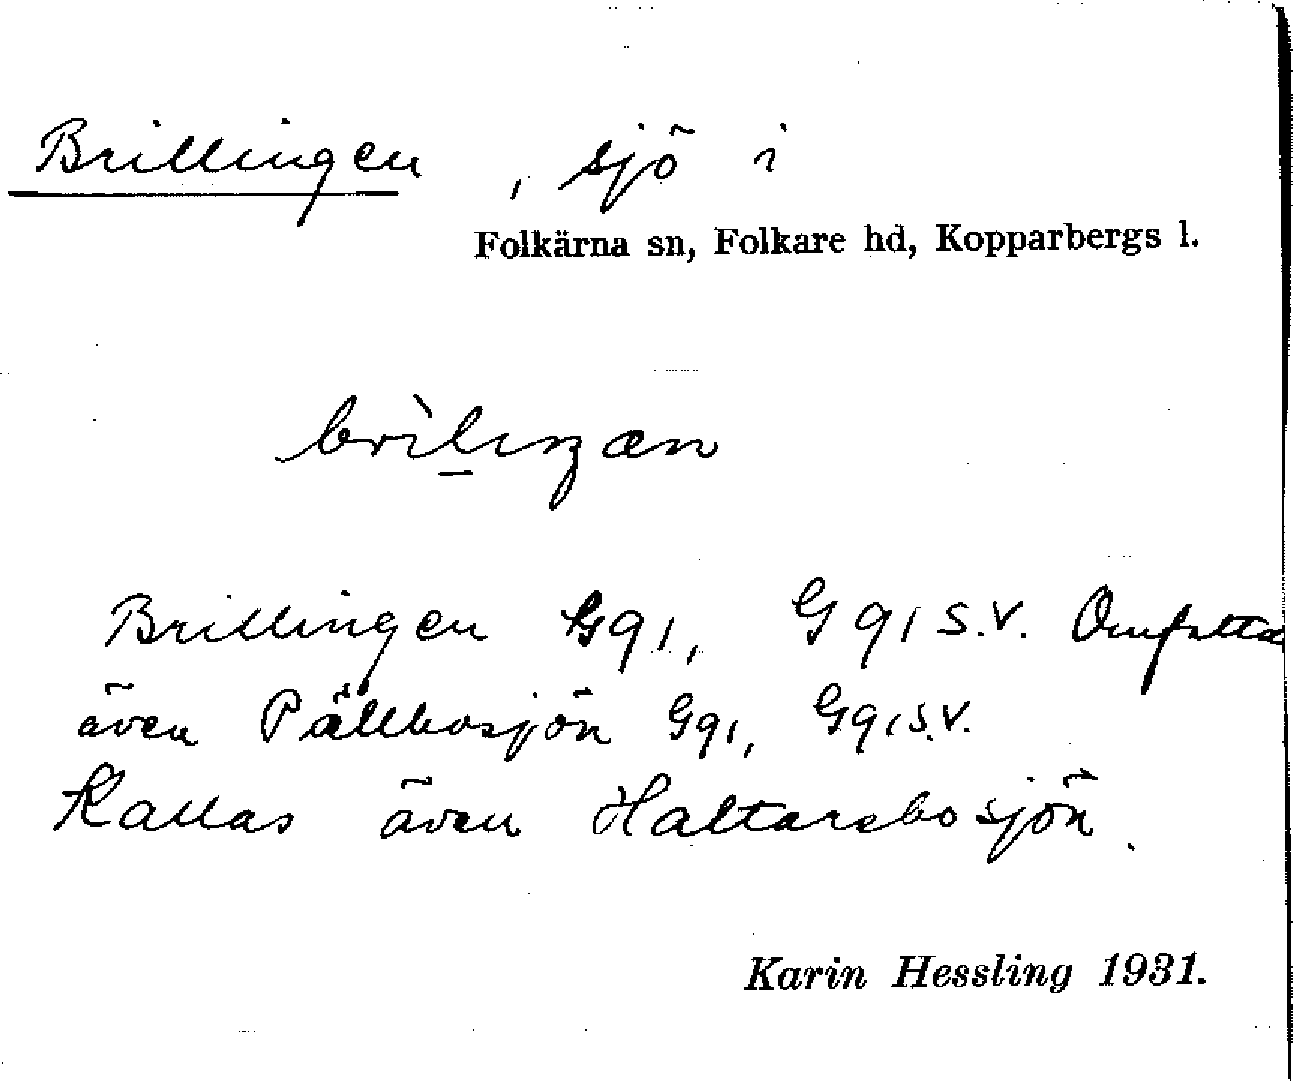 Brillingen, sjö i
Folkärna sn, Folkare hd, Kopparbergs l.
brìlıŋæn
Brillingen Gq1, Gq1 S.V. Omfatta
även Pällbosjön Gq1, Gq1 S.V.
Kallas även Haltarebosjön.
Karin Hessling 1931.